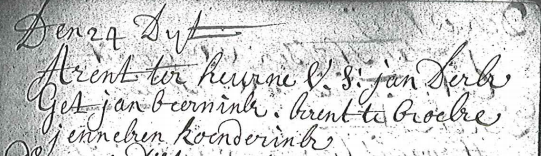 Den 24 Dyt
Arent ter heurne V. S: jan Derk
Get jan boomink. berent te broeke
jenneken koenderink